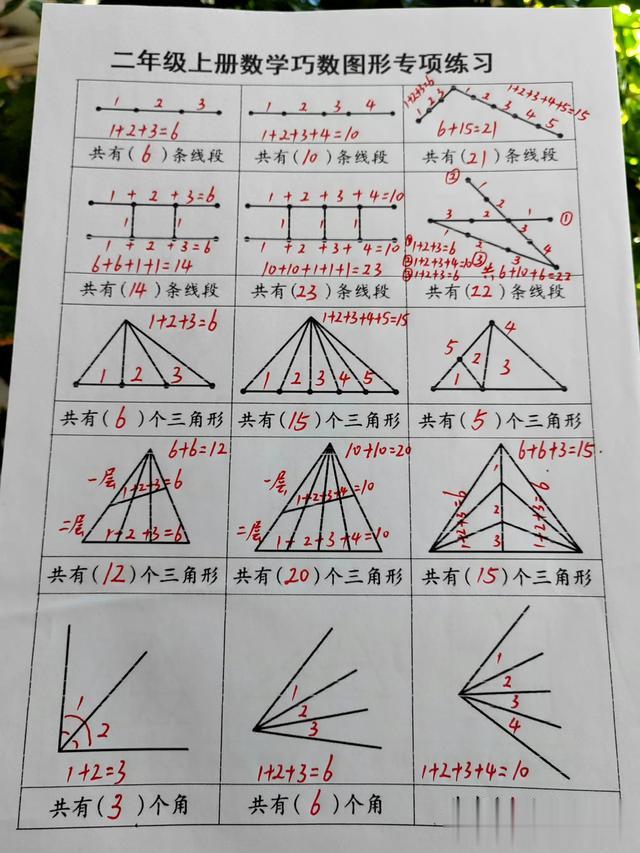 二年级上册数学巧数图形专项练习
1 2 3
1+2+3=6
共有(6)条线段
1 2 3 4
1+2+3+4=10
共有(10)条线段
1+2+3=6
1+2+3+4+5=15
1 2 3
1 2 3 4 5
6+15=21
共有(21)条线段
1 + 2 + 3=6
1 1
1 + 2 + 3=6
6+6+1+1=14
共有(14)条线段
1 + 2 + 3 + 4=10
1 1 1
1 + 2 + 3 + 4=10
10+10+1+1+1=23
共有(23)条线段
②
1
2
3 2 1 ①
3
1 2 3 4
③
①1+2+3=6
②1+2+3+4=10
③1+2+3=6
共6+10+6=22
共有(22)条线段
1+2+3=6
1 2 3
共有(6)个三角形
1+2+3+4+5=15
1 2 3 4 5
共有(15)个三角形
4
5 2 3
1
共有(5)个三角形
6+6=12
一层
1+2+3=6
二层
1+2+3=6
共有(12)个三角形
10+10=20
一层
1+2+3+4=10
二层
1+2+3+4=10
共有(20)个三角形
6+6+3=15
1
2
3
1+2+3=6
1+2+3=6
共有(15)个三角形
1
2
1+2=3
共有(3)个角
1
2
3
1+2+3=6
共有(6)个角
1
2
3
4
1+2+3+4=10